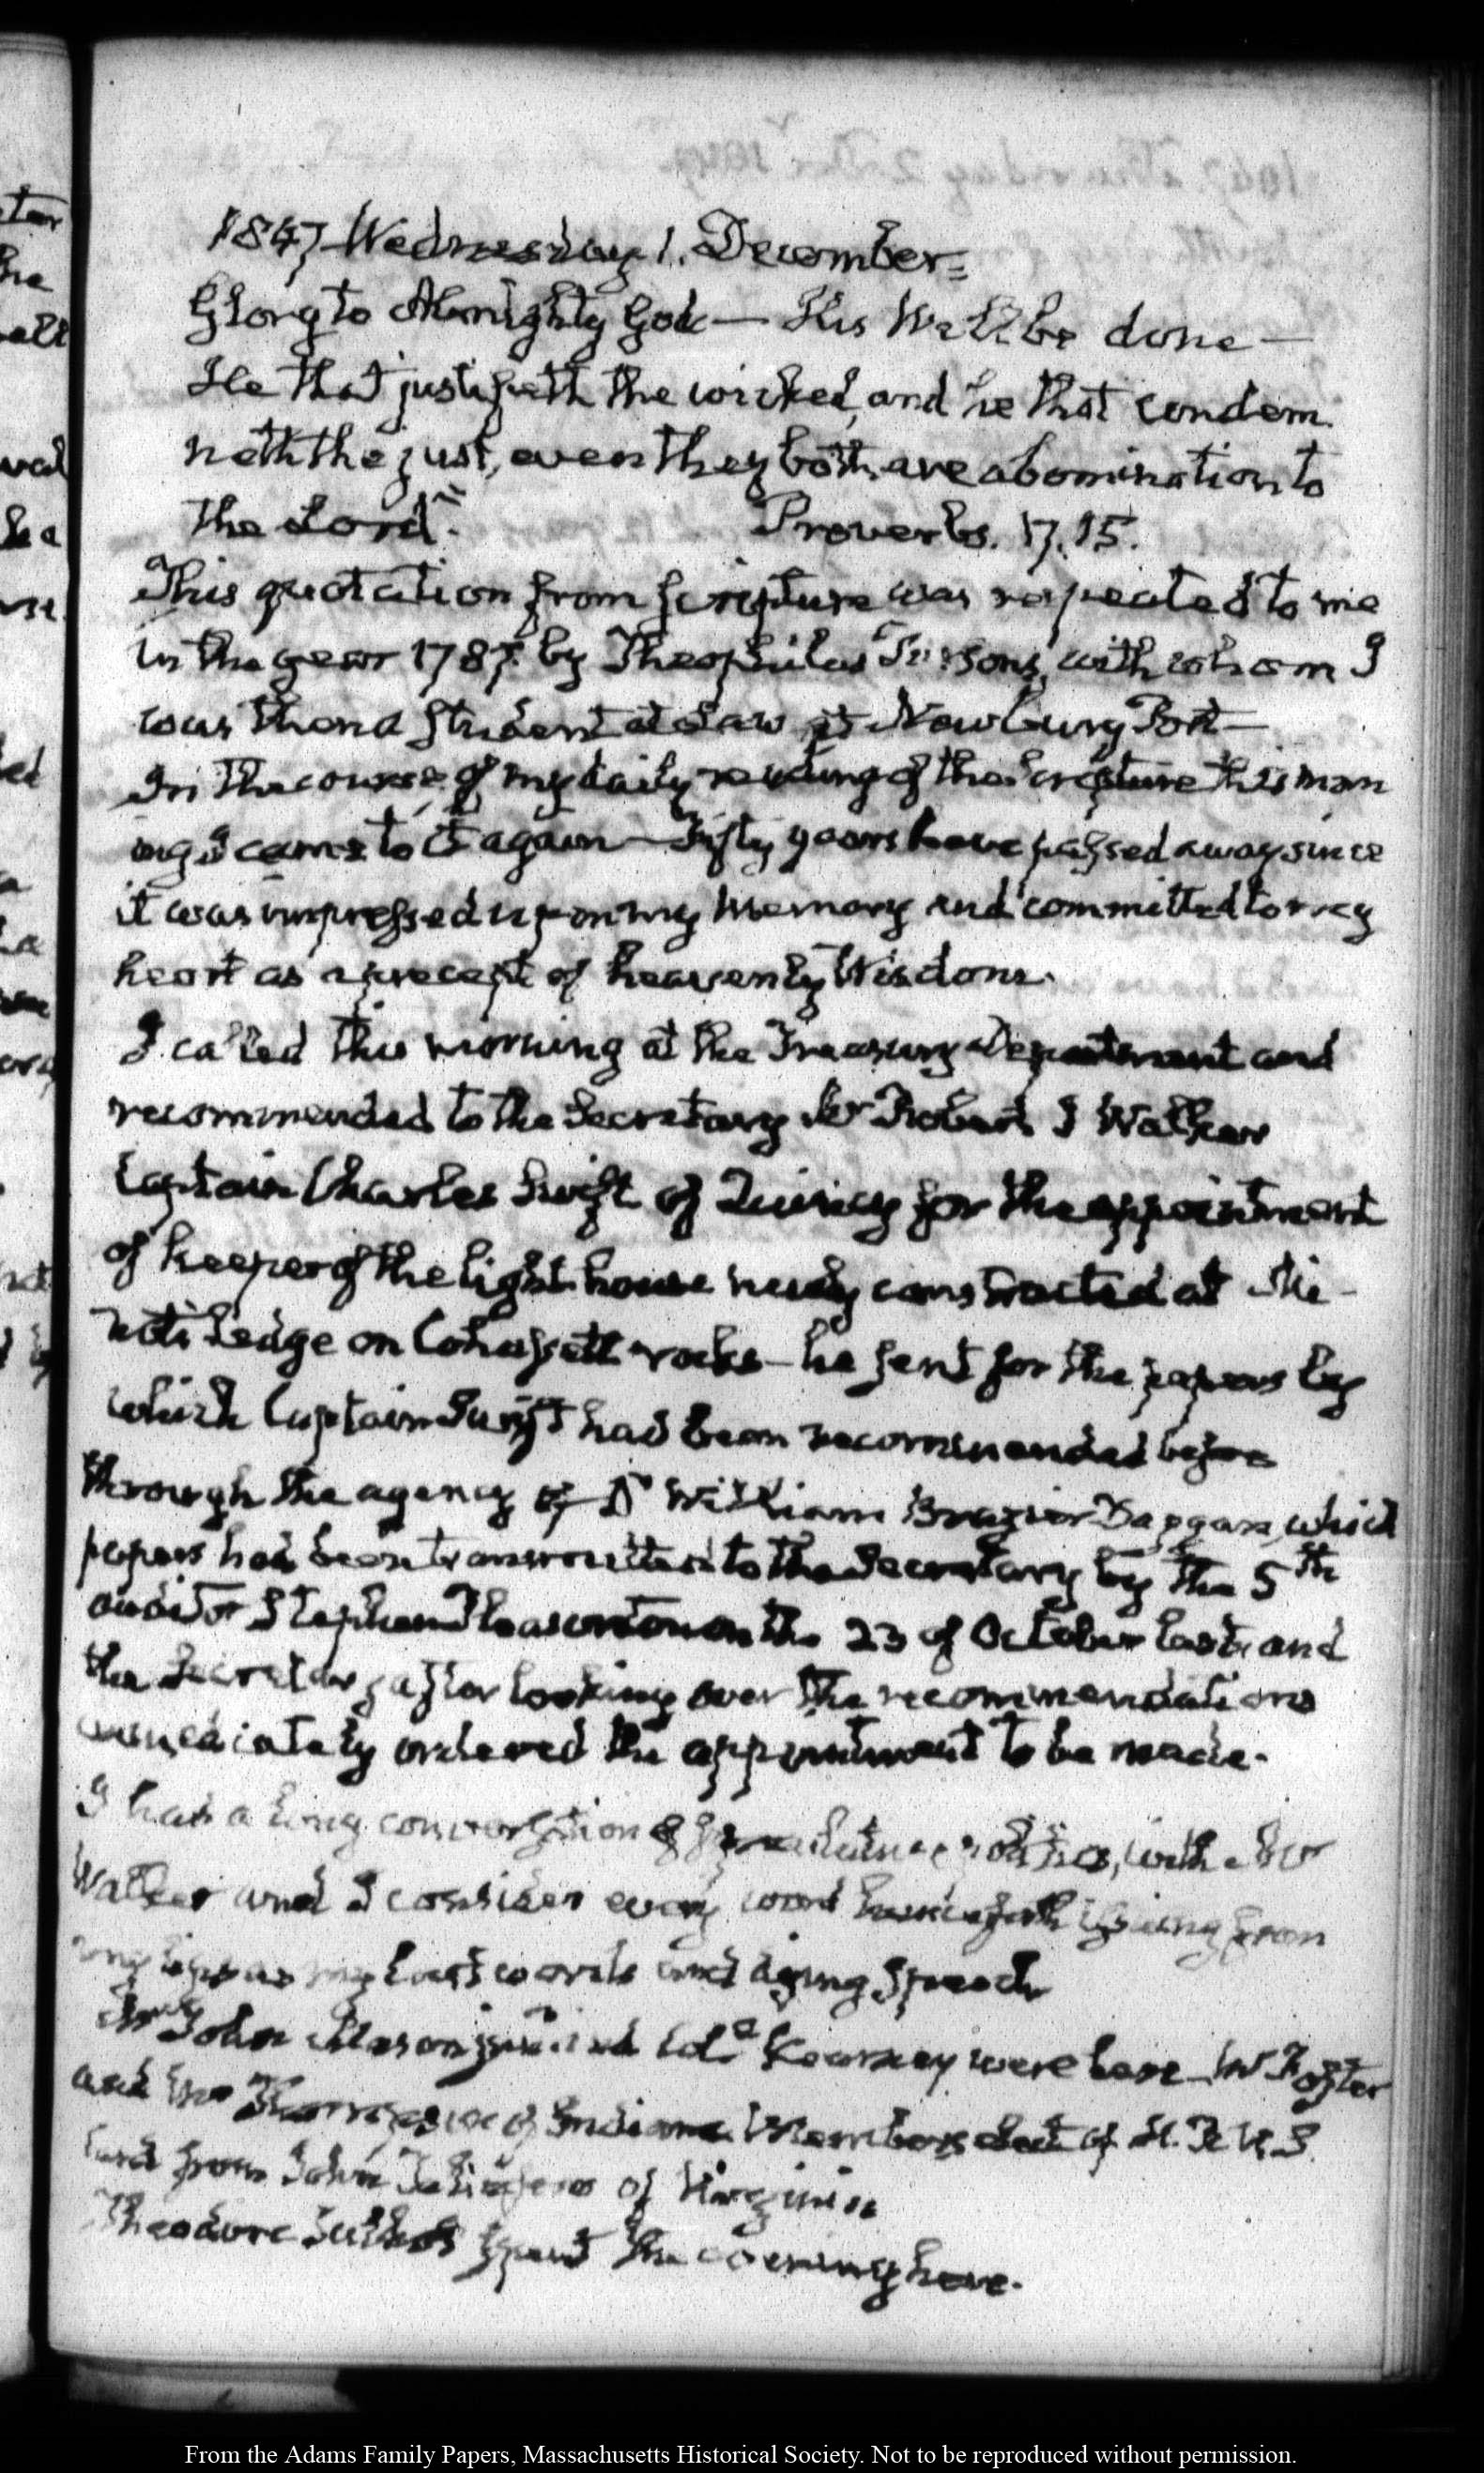 1847 Wednesday 1. December.
Glory to Almighty God — His Will be done —
He that justifieth the wicked, and he that condem
neth the just, even they both are abomination to
the Lord". Proverbs. 17. 15.
This quotation from Scripture was repeated to me
in the year 1787. by Theophilus Parsons, with whom I
was then a Student at Law at Newbury Port —
In the course of my daily reading of the Scripture this morn
ing I came to it again — Fifty years have passed away since
it was impressed upon my Memory and committed to my
heart as a precept of heavenly Wisdom.
I called this morning at the Treasury Department and
recommended to the Secretary Mr Robert J Walker
Captain Charles Swift of Quincy for the appointment
of keeper of the light house newly constructed at Mi-
nots Ledge on Cohassett rocks — he sent for the papers by
which Captain Swift had been recommended before
through the agency of Dr William Brazier Duggan, which
papers had been transmitted to the Secretary by the 5th
auditor Stephen Pleasonton on the 23 of October last, and
the Secretary after looking over the recommendations
immediately ordered the appointment to be made.
I had a long conversation of politics, with Mr
Walker and I consider every word henceforth issuing from
my lips as my last words and dying speech
Mrs John Mason junr and Kearney were here — Mr
and Mr Thompson of Indiana Members elect of H. R. U. S.
Card from John Taliafero of Virginia
Theodore spent the evening here.
From the Adams Family Papers, Massachusetts Historical Society. Not to be reproduced without permission.